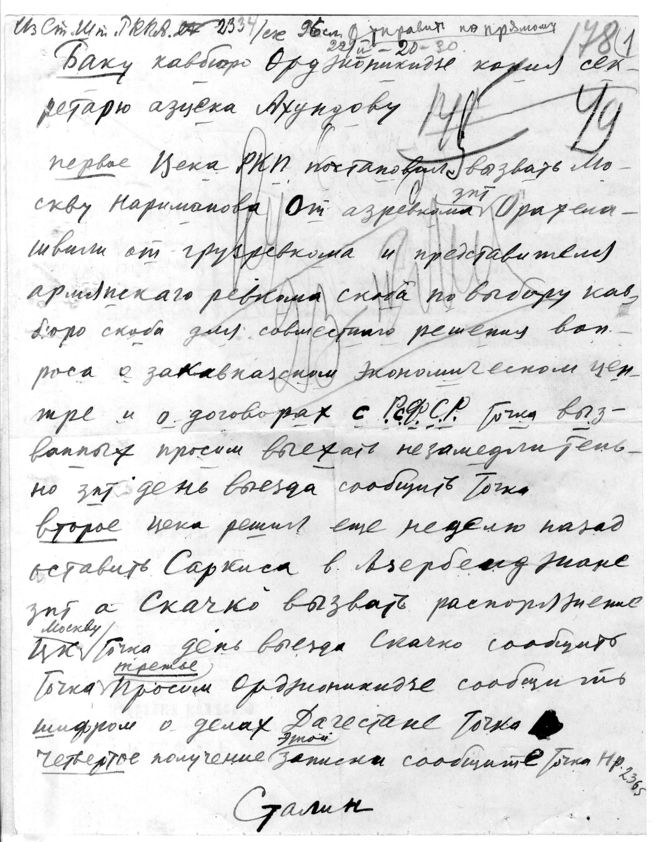 Из Ст. Шт. РККА. 2334/ск 96 сл. отправить по прямому
178 (1
22/II-20-30.
Баку кавбюро Орджоникидзе копия сек-
ретарю азцека Ахундову
149
первое Цека РКП постановил вызвать Мо-
скву Нариманова от азревкома зпт Орахела-
швили от грузревкома и представителя
армянскаго ревкома скоба по выбору кав-
бюро скоба для совместного решения воп-
роса о закавказском экономическом цен-
тре и о договорах с Р.С.Ф.С.Р. Точка выз-
ванных просим выехать незамедлитель-
но зпт день выезда сообщить Точка
второе цека решил еще неделю назад
оставить Саркиса в Азербейджане
зпт а Скачко вызвать распоряжение
Москву
ЦК Точка день выезда Скачко сообщить
третье
Точка Просим Орджоникидзе сообщить
шифром о делах Дагестане Точка
этой
четвертое получение записки сообщите Точка Нр. 2365
Сталин